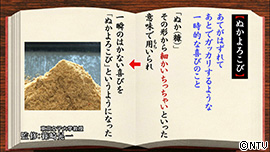 【ぬかよろこび】
あてがはずれて
あとでガッカリするような
一時的な喜びのこと
「ぬか(糠)」
その形から細かいちっちゃいといった
意味で用いられ
一瞬のはかない喜びを
「ぬかよろこび」というようになった
監修:篠崎晃一
©NTV